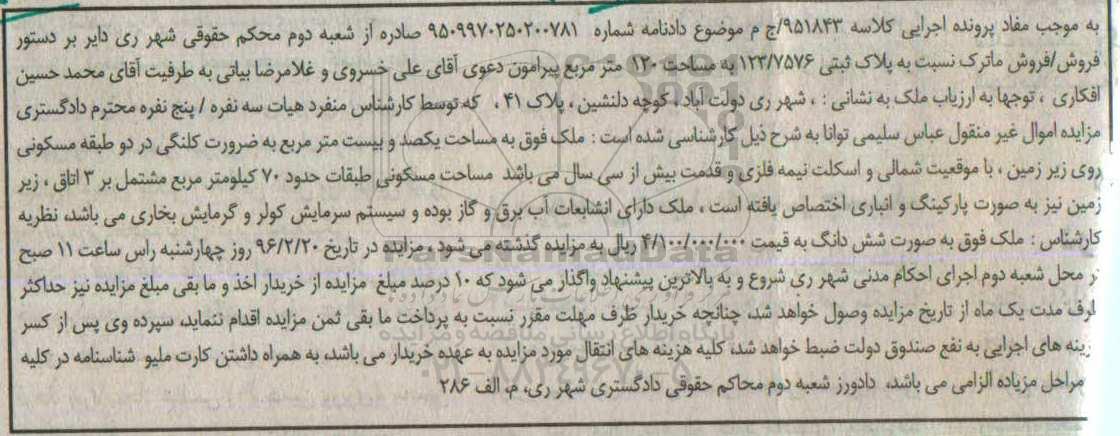 به موجب مفاد پرونده اجرایی کلاسه ۹۵۱۸۴۳/ج م موضوع دادنامه شماره ۹۵۰۹۹۷۰۲۵۰۲۰۰۷۸۱ صادره از شعبه دوم محکم حقوقی شهر ری دایر بر دستور
فروش/فروش ماترک نسبت به پلاک ثبتی ۱۲۳/۷۵۷۶ به مساحت ۱۲۰ متر مربع پیرامون دعوی آقای علی خسروی و غلامرضا بیاتی به طرفیت آقای محمد حسین
افکاری ، توجها به ارزیاب ملک به نشانی : ، شهر ری دولت آباد ، کوچه دلنشین ، پلاک ۴۱ ، که توسط کارشناس منفرد هیات سه نفره / پنج نفره محترم دادگستری
مزایده اموال غیر منقول عباس سلیمی توانا به شرح ذیل کارشناسی شده است : ملک فوق به مساحت یکصد و بیست متر مربع به ضرورت کلنگی در دو طبقه مسکونی
روی زیر زمین ، با موقعیت شمالی و اسکلت نیمه فلزی و قدمت بیش از سی سال می باشد مساحت مسکونی طبقات حدود ۷۰ کیلومتر مربع مشتمل بر ۳ اتاق ، زیر
زمین نیز به صورت پارکینگ و انباری اختصاص یافته است ، ملک دارای انشابعات آب برق و گاز بوده و سیستم سرمایش کولر و گرمایش بخاری می باشد، نظریه
کارشناس : ملک فوق به صورت شش دانگ به قیمت ۴/۱۰۰/۰۰۰/۰۰۰ ریال به مزایده گذشته می شود ، مزایده در تاریخ ۹۶/۲/۲۰ روز چهارشنبه راس ساعت ۱۱ صبح
ر محل شعبه دوم اجرای احکام مدنی شهر ری شروع و به بالاترین پیشنهاد واگذار می شود که ۱۰ درصد مبلغ مزایده از خریدار اخذ و ما بقی مبلغ مزایده نیز حداکثر
رف مدت یک ماه از تاریخ مزایده وصول خواهد شد، چنانچه خریدار ظرف مهلت مقرر نسبت به پرداخت ما بقی ثمن مزایده اقدام ننماید، سپرده وی پس از کسر
زینه های اجرایی به نفع صندوق دولت ضبط خواهد شد، کلیه هزینه های انتقال مورد مزایده به عهده خریدار می باشد، به همراه داشتن کارت ملیو شناسنامه در کلیه
مراحل مزیاده الزامی می باشد، دادورز شعبه دوم محاکم حقوقی دادگستری شهر ری، م، الف ۲۸۶
ParsNamadData
پایگاه اطلاع رسانی مناقصه و مزایده
۰۲۱-۸۸۳۴۹۶۷۰-۵